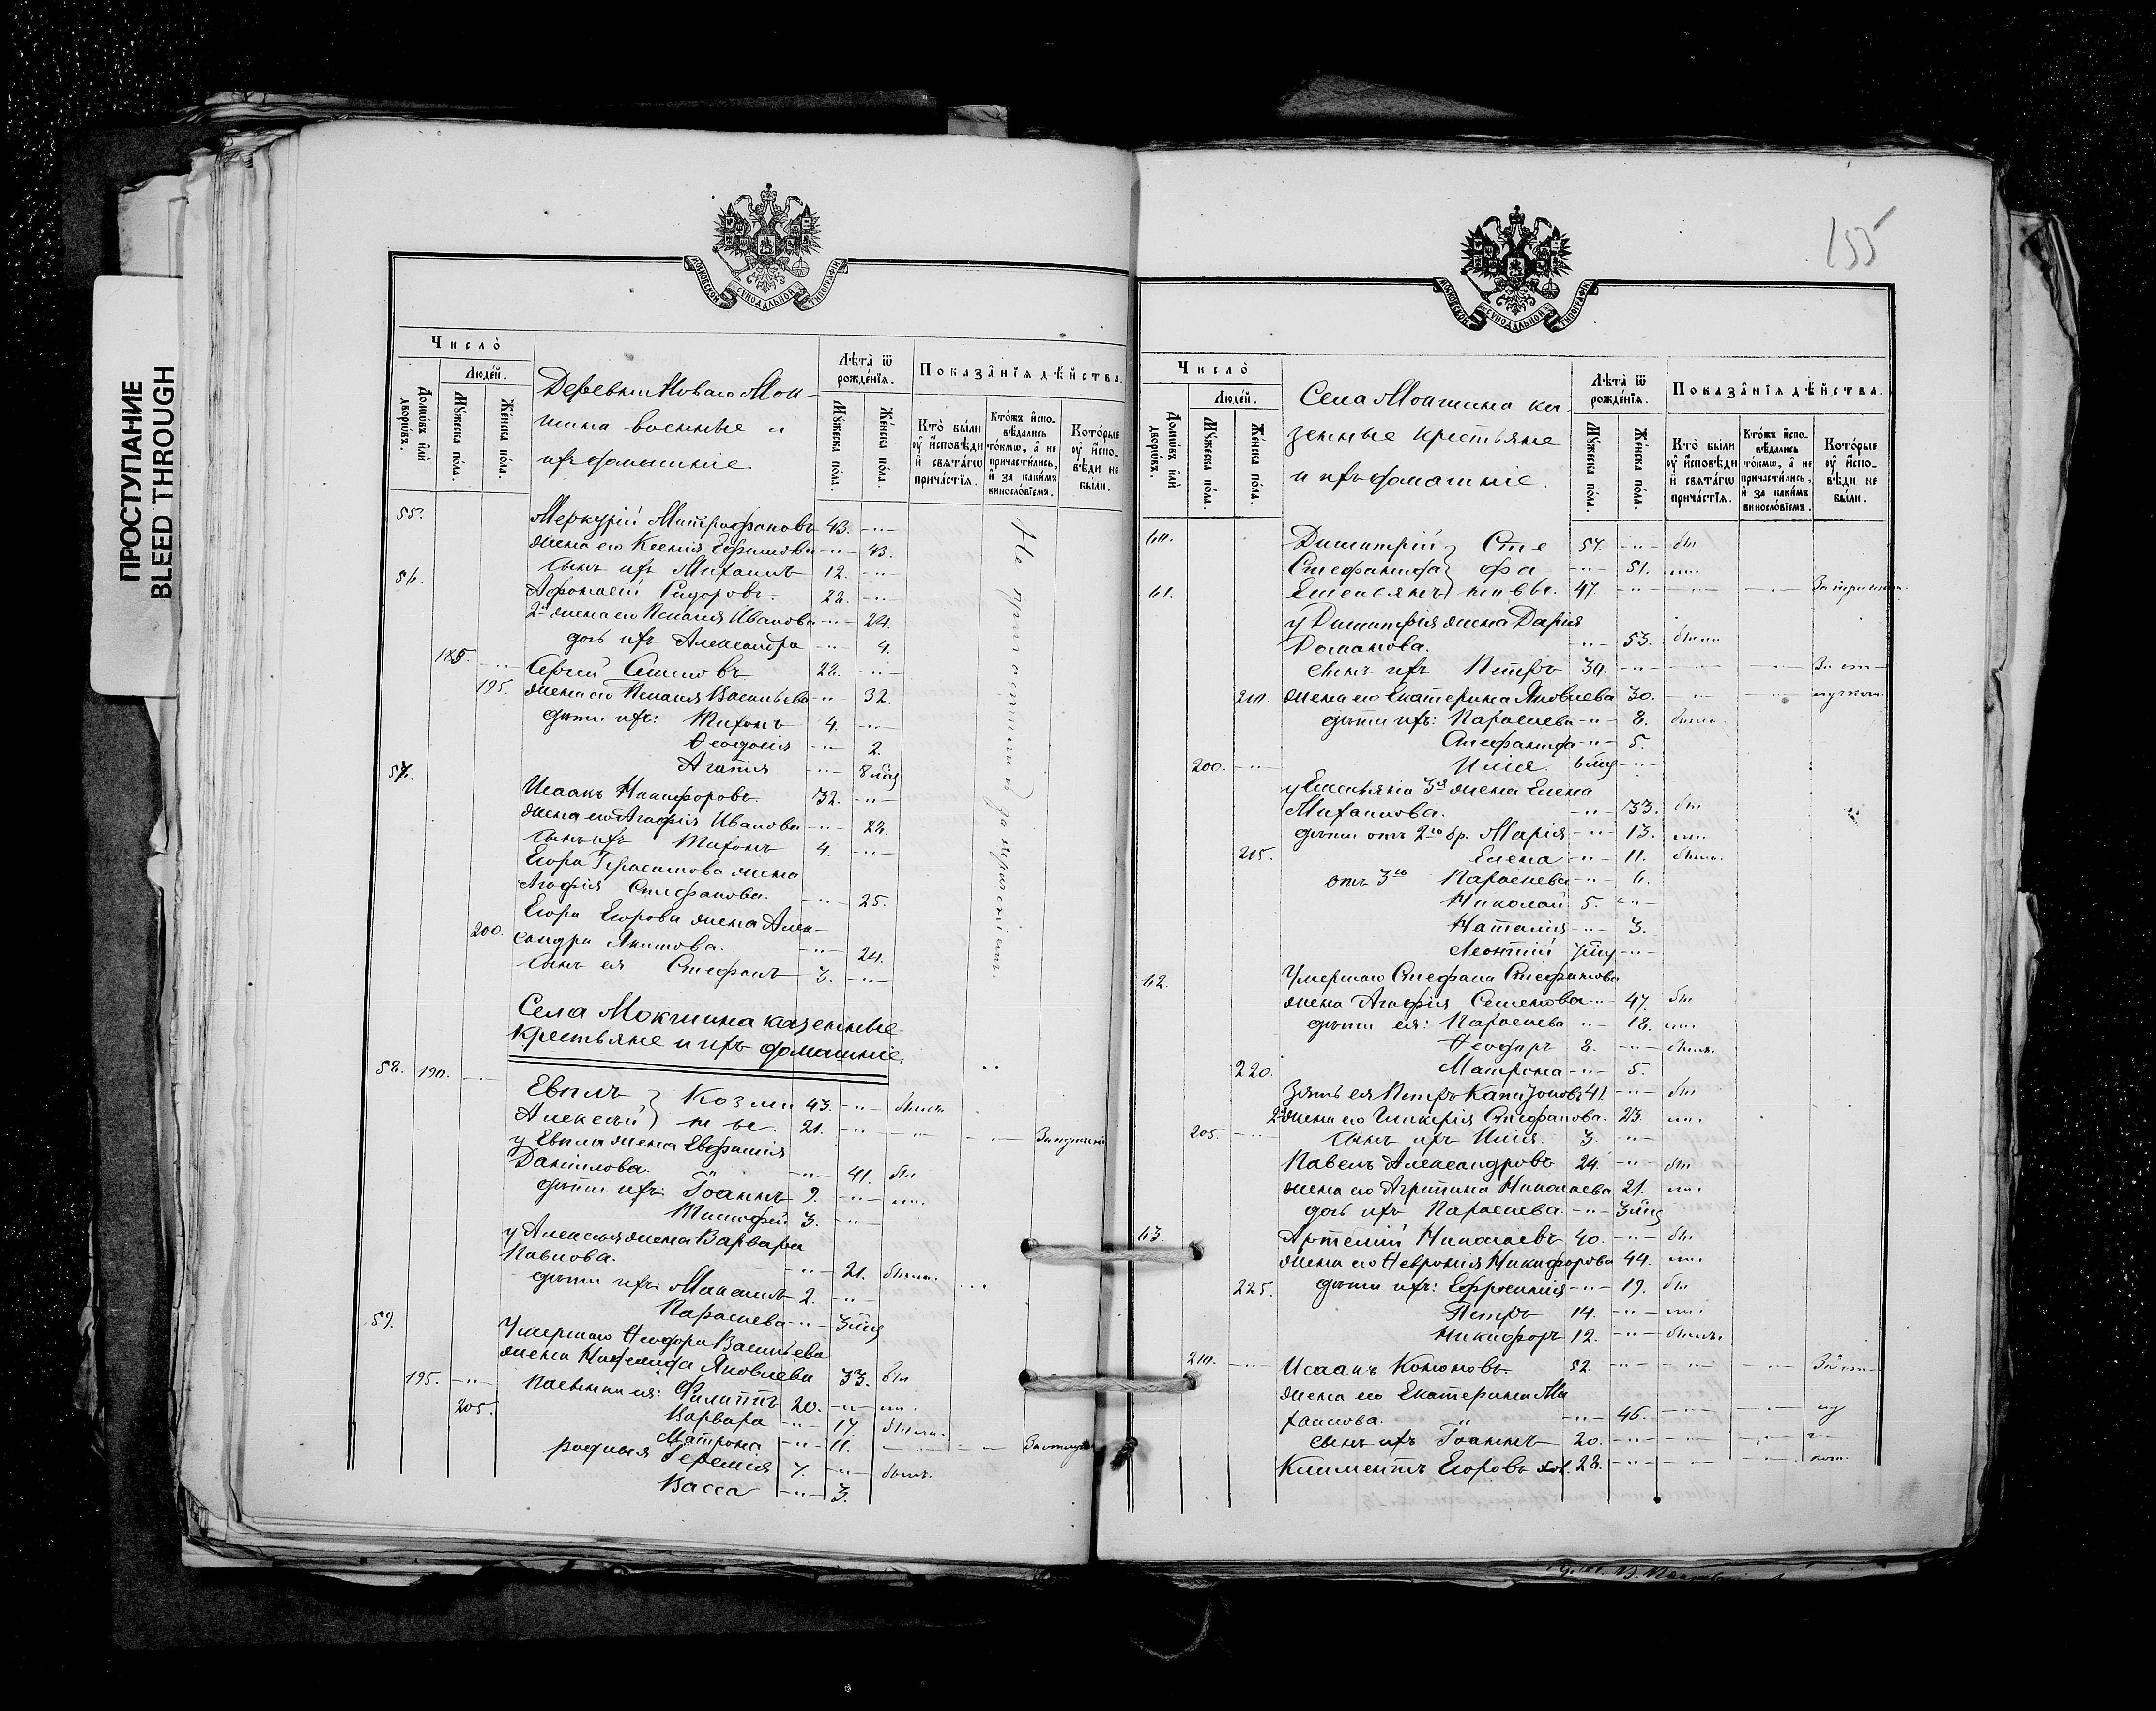 ПРОСТУПАНИЕ
BLEED THROUGH
МОСКОВСКОЙ СѴНОДАЛЬНОЙ ТИПОГРАФІИ
Число̀
Людéй.
Домѡ́въ и҆лѝ дворѡ́въ.
Мꙋ́жеска по́ла.
Же́нска по́ла.
Деревни Новаго Мок-
шина военные и
ихъ домашніе
Лѣта̀ ѿ рожде́нїѧ.
Мꙋ́жеска по́ла.
Же́нска по́ла.
Показа̂нїѧ дѣ́йства.
Кто̀ бы́ли ᲂу҆ и҆сповѣди и҆ свѧта́гѡ прича́стїѧ.
Кто́жъ и҆спо-вѣдались то́кмѡ, а҆ не причасти́лись, и҆ за каки́мъ винослові́емъ.
Кото́рые ᲂу҆ и҆спо-вѣди не бы́ли.
55. Меркурій Митрофановъ 43. -"-
жена его Ксенія Ефимова -"- 43.
сынъ ихъ Михаилъ 12. -"-
56. Афонасій Сидоровъ 22. -"-
2я жена его Пелагія Иванова -"- 24.
дочь ихъ Александра -"- 4.
185. -"- Сергій 22. -"-
195. жена его Пелагія Васильева -"- 32.
дѣти ихъ: Тихонъ 4. -"-
Ѳеодосія -"- 2.
Агапія -"- 8 мцъ
57. Исаакъ Никифоровъ 32. -"-
жена его Агафія Иванова -"- 22.
сынъ ихъ Тихонъ 4. -"-
Егора Герасимова жена
Агафія Стефанова. -"- 25.
Егора Егорова жена Алек-
200. сандра Якимова. -"- 24.
сынъ ея Стефанъ 3. -"-
Не за
Села Мокшина казенные
крестьяне и ихъ домашніе.
58. 190. -"- Евплъ } Козми 43. -"- былъ
Алексій } ны 21. -"- -"- -"-
у Евпла жена Евфимія
Даніилова. -"- 41. бы
дѣти ихъ: Іоаннъ 9. -"- ли.
Тимофей 3. -"-
у Алексія жена Варвара
Павлова. -"- 21. была.
дѣти ихъ: 2. -"-
Параскева -"- 3 мцъ
59. Умершаго Ѳеодора Васильева
жена Яковлева 33. бы
195. -"- ея: Филиппъ 20. -"- ли.
205. Варвара -"- 17. были.
Матрона -"- 11. -"- -"-
родныя Іеремія 7. -"- былъ.
Васса -"- 3.
155
МОСКОВСКОЙ СѴНОДАЛЬНОЙ ТИПОГРАФІИ
Число̀
Людéй.
Домѡ́въ и҆лѝ дворѡ́въ.
Мꙋ́жеска по́ла.
Же́нска по́ла.
Села Мокшина ка-
зенные крестьяне
и ихъ домашніе.
Лѣта̀ ѿ рожде́нїѧ.
Мꙋ́жеска по́ла.
Же́нска по́ла.
Показа̂нїѧ дѣ́йства.
Кто̀ бы́ли ᲂу҆ и҆сповѣди и҆ свѧта́гѡ прича́стїѧ.
Кто́жъ и҆спо-вѣдались то́кмѡ, а҆ не причасти́лись, и҆ за каки́мъ винослові́емъ.
Кото́рые ᲂу҆ и҆спо-вѣди не бы́ли.
60. Димитрій } Сте 57. -"- бы
Стефанида } фа -"- 51. ли.
61. Емельянъ } новы. 47. -"- -"- -"-
у Димитрія жена Дарія
Романова. -"- 53. была
сынъ ихъ Петръ 30. -"- -"- -"- За от-
210. жена его Екатерина Яковлева 30. -"- -"- лучкою.
дѣти ихъ: Параскева -"- 8. была.
Стефанида -"- 5.
200. -"- Илія 6 мцъ -"-
у Емельяна 3я жена Елена
Михаилова. -"- 33. бы
дѣти отъ 2го бр. Марія -"- 13. ли.
215. Елена -"- 11. была.
отъ 3го Параскева -"- 6.
Николай 5. -"-
Наталія -"- 3.
Леонтій 7 мцъ -"-
62. Умершаго Стефана Стефанова
жена Агафія Семенова -"- 47. бы
дѣти ея: Параскева -"- 18. ли.
Ѳеодоръ 8. -"- былъ.
220. Матрона -"- 5.
Зять ея Петръ Капитоновъ 41. -"- бы
2я жена его Гликерія Стефанова. 23. ли.
205. -"- сынъ ихъ Илія. 3. -"-
Павелъ Александровъ 24. -"- бы
жена его Агрипина Николаева 21. ли.
дочь ихъ Параскева. -"- 3 мцъ
63. Артемій Николаевъ 40. -"- бы
жена его Ѳевронія Никифорова 44. ли.
225. дѣти ихъ: Ефросинія -"- 19. бы
Петръ 14. -"- ли.
Никифоръ 12. -"- былъ.
210. -"- Исаакъ Кононовъ 52. -"- -"- -"- За от-
жена его Екатерина Ми
хаилова. -"- 46. -"- -"- лу
сынъ ихъ Іоаннъ 20. -"- -"- -"- ч-
Климентъ Егоровъ хол. 28. -"- -"- -"- кою.